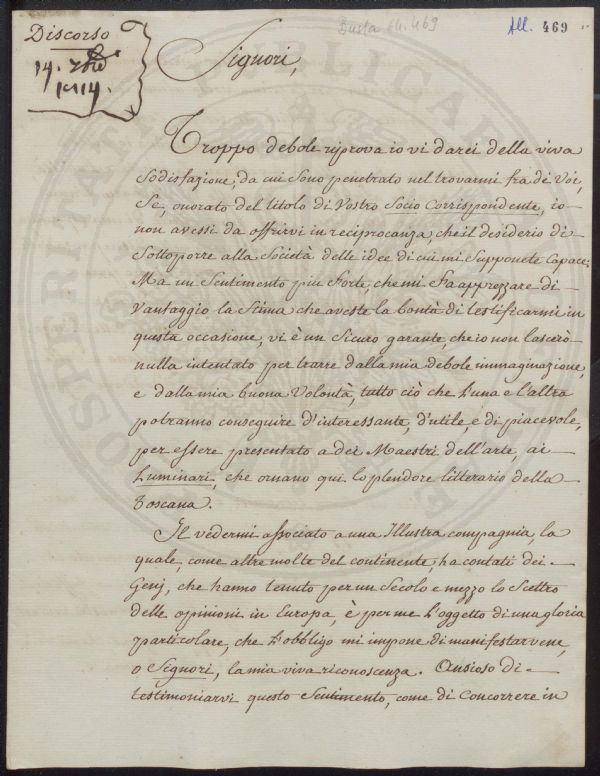 Discorso
14. 7bre
1814.
Busta 64.469
All. 469
Signori,
Troppo debole riprova io vi darei della viva
Sodisfazione, da cui sono penetrato nel trovarmi fra de' Voi,
Se, onorato del titolo di Vostro Socio Corrispondente, io
non avessi da offrirvi in reciprocanza, che il desiderio di
Sottoporre alla Società delle idee di cui mi Supponete Capace:
Ma un Sentimento più forte, che mi fa apprezzare di
Vantaggio la Stima che aveste la bontà di testificarmi in
questa occasione, vi è un Sicuro garante, che io non lascerò
nulla intentato per trarre dalla mia debole immaginazione,
e dalla mia buona Volontà, tutto ciò che l'una e l'altra
potranno conseguire d'interessante, d'utile, e di piacevole,
per essere presentato a dei Maestri dell'arte, ai
Luminari, che ornano qui lo splendore litterario della
Toscana.
Il vedermi associato a una Illustra compagnia, la
quale, come altre molte del continente, ha contati dei
Genj, che hanno tenuto per un Secolo e mezzo lo Scettro
delle opinioni in Europa, è per me l'oggetto di una gloria
particolare, che l'obbligo mi impone di manifestarvene,
o Signori, la mia viva riconoscenza. Ansioso di
testimoniarvi questo Sentimento, come di concorrere in